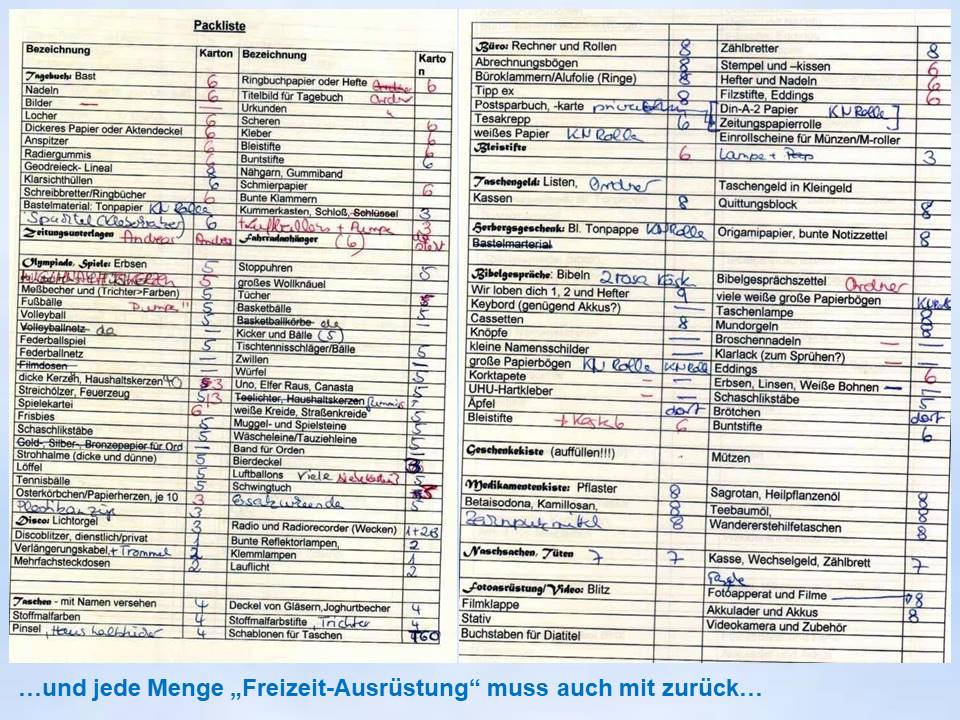 Packliste
Bezeichnung Karton Bezeichnung Karton
Tagebuch: Bast 6 Ringbuchpapier oder Hefte Ordner 6
Nadeln 6 Titelbild für Tagebuch Ordner
Bilder — Urkunden "
Locher 6 Scheren 6
Dickeres Papier oder Aktendeckel 6 Kleber 6
Anspitzer 6 Bleistifte 6
Radiergummis 6 Buntstifte 6
Geodreieck- Lineal 8 Nähgarn, Gummiband
Klarsichthüllen 6 Schmierpapier 6
Schreibbretter/Ringbücher 6 Bunte Klammern
Bastelmaterial: Tonpapier KN Rolle Kummerkasten, Schloß, Schlüssel 3
Spachtel 6 + Luftballons + Pumpe 3
Zeitungsunterlagen Andreas Andrea Fahrradanhänger (6)
Olympiade, Spiele: Erbsen 5 Stoppuhren 5
5 großes Wollknäuel
Meßbecher und (Trichter>Farben) 5 Tücher 5
Fußbälle "Pumpe" 5 Basketbälle 5
Volleyball 5 Basketballkörbe da
Volleyballnetz da — Kicker und Bälle (5)
Federballspiel 5 Tischtennisschläger/Bälle 5
Federballnetz — Zwillen —
Filmdosen — Würfel 5
dicke Kerzen, Haushaltskerzen 40 3 Uno, Elfer Raus, Canasta 5
Streichölzer, Feuerzeug 5/3 Teelichter, Haushaltskerzen
Spielekartei 6 weiße Kreide, Straßenkreide 5
Frisbies 5 Muggel- und Spielsteine 5
Schaschlikstäbe 5 Wäscheleine/Tauziehleine 5
Gold-, Silber-, Bronzepapier für Ord — Band für Orden
Strohhalme (dicke und dünne) 5 Bierdeckel 3
Löffel 5 Luftballons viele
Tennisbälle 5 Schwingtuch 5
Osterkörbchen/Papierherzen, je 10 3 5
3
Disco: Lichtorgel 3 Radio und Radiorecorder (Wecken) 1+2
Discoblitzer, dienstlich/privat 1 Bunte Reflektorlampen, 2
Verlängerungskabel, + Trommel 2 Klemmlampen 1
Mehrfachsteckdosen 2 Lauflicht 2
Taschen - mit Namen versehen 4 Deckel von Gläsern,Joghurtbecher 4
Stoffmalfarben 4 Stoffmalfarbstifte, Trichter 4
Pinsel, 4 Schablonen für Taschen
Büro: Rechner und Rollen 8 Zählbretter 8
Abrechnungsbögen 8 Stempel und –kissen 6
Büroklammern/Alufolie (Ringe) 8 Hefter und Nadeln 6
Tipp ex 8 Filzstifte, Eddings 6
Postsparbuch, -karte Din-A-2 Papier KN Rolle
Tesakrepp 6 Zeitungspapierrolle
weißes Papier KN Rolle Einrollscheine für Münzen/M-roller
Bleistifte 6 Lampe + 3
Taschengeld: Listen, Ordner Taschengeld in Kleingeld
Kassen 8 Quittungsblock 8
Herbergsgeschenk: Bl. Tonpappe KN Rolle Origamipapier, bunte Notizzettel 8
Bastelmarterial
Bibelgespräche: Bibeln 2 rosa Bibelgesprächszettel Ordner
Wir loben dich 1, 2 und Hefter 9 viele weiße große Papierbögen
Keybord (genügend Akkus?) — Taschenlampe 8
Cassetten 8 Mundorgeln 8
Knöpfe Broschennadeln —
kleine Namensschilder — Klarlack (zum Sprühen?) —
große Papierbögen KN Rolle KN Rolle Eddings 6
Korktapete – – Erbsen, Linsen, Weiße Bohnen —
UHU-Hartkleber – – Schaschlikstäbe 5
Äpfel dort Brötchen dort
Bleistifte 6 Buntstifte 6
Geschenkekiste (auffüllen!!!) Mützen
Medikamentenkiste: Pflaster 8 Sagrotan, Heilpflanzenöl 8
Betaisodona, Kamillosan, 8 Teebaumöl, 8
8 Wandererstehilfetaschen 8
Naschsachen, Tüten 7 7 Kasse, Wechselgeld, Zählbrett 7
Fotoausrüstung/Video: Blitz Fotoapperat und Filme 8
Filmklappe Akkulader und Akkus 8
Stativ Videokamera und Zubehör
Buchstaben für Diatitel
…und jede Menge „Freizeit-Ausrüstung“ muss auch mit zurück…